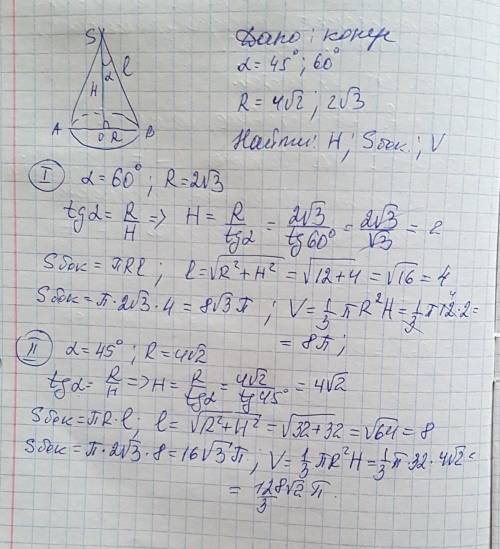 Дано: конус
α = 45°; 60°
R = 4√2; 2√3
Найти: H; Sбок.; V
S
α
l
H
A
O
R
B
I α = 60°; R = 2√3
tg α = R/H => H = R/tg α = 2√3/tg 60° = 2√3/√3 = 2
Sбок = πRl; l = √(R² + H²) = √(12+4) = √16 = 4
Sбок = π·2√3·4 = 8√3 π; V = 1/3 πR²H = 1/3 π 12·2 =
= 8π;
II α = 45°; R = 4√2
tg α = R/H => H = R/tg α = 4√2/tg 45° = 4√2
Sбок = πR·l; l = √(R² + H²) = √(32+32) = √64 = 8
Sбок = π·2√3·8 = 16√3 π; V = 1/3 πR²H = 1/3 π·32·4√2 =
= 128√2/3 π.